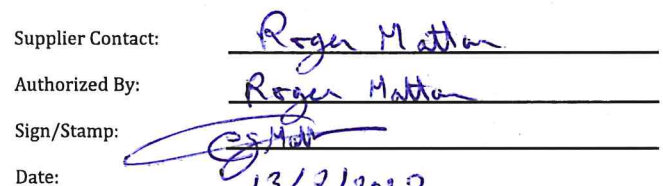 Supplier Contact: Roger Mattan
Authorized By: Roger Mattan
Sign/Stamp:
Date: